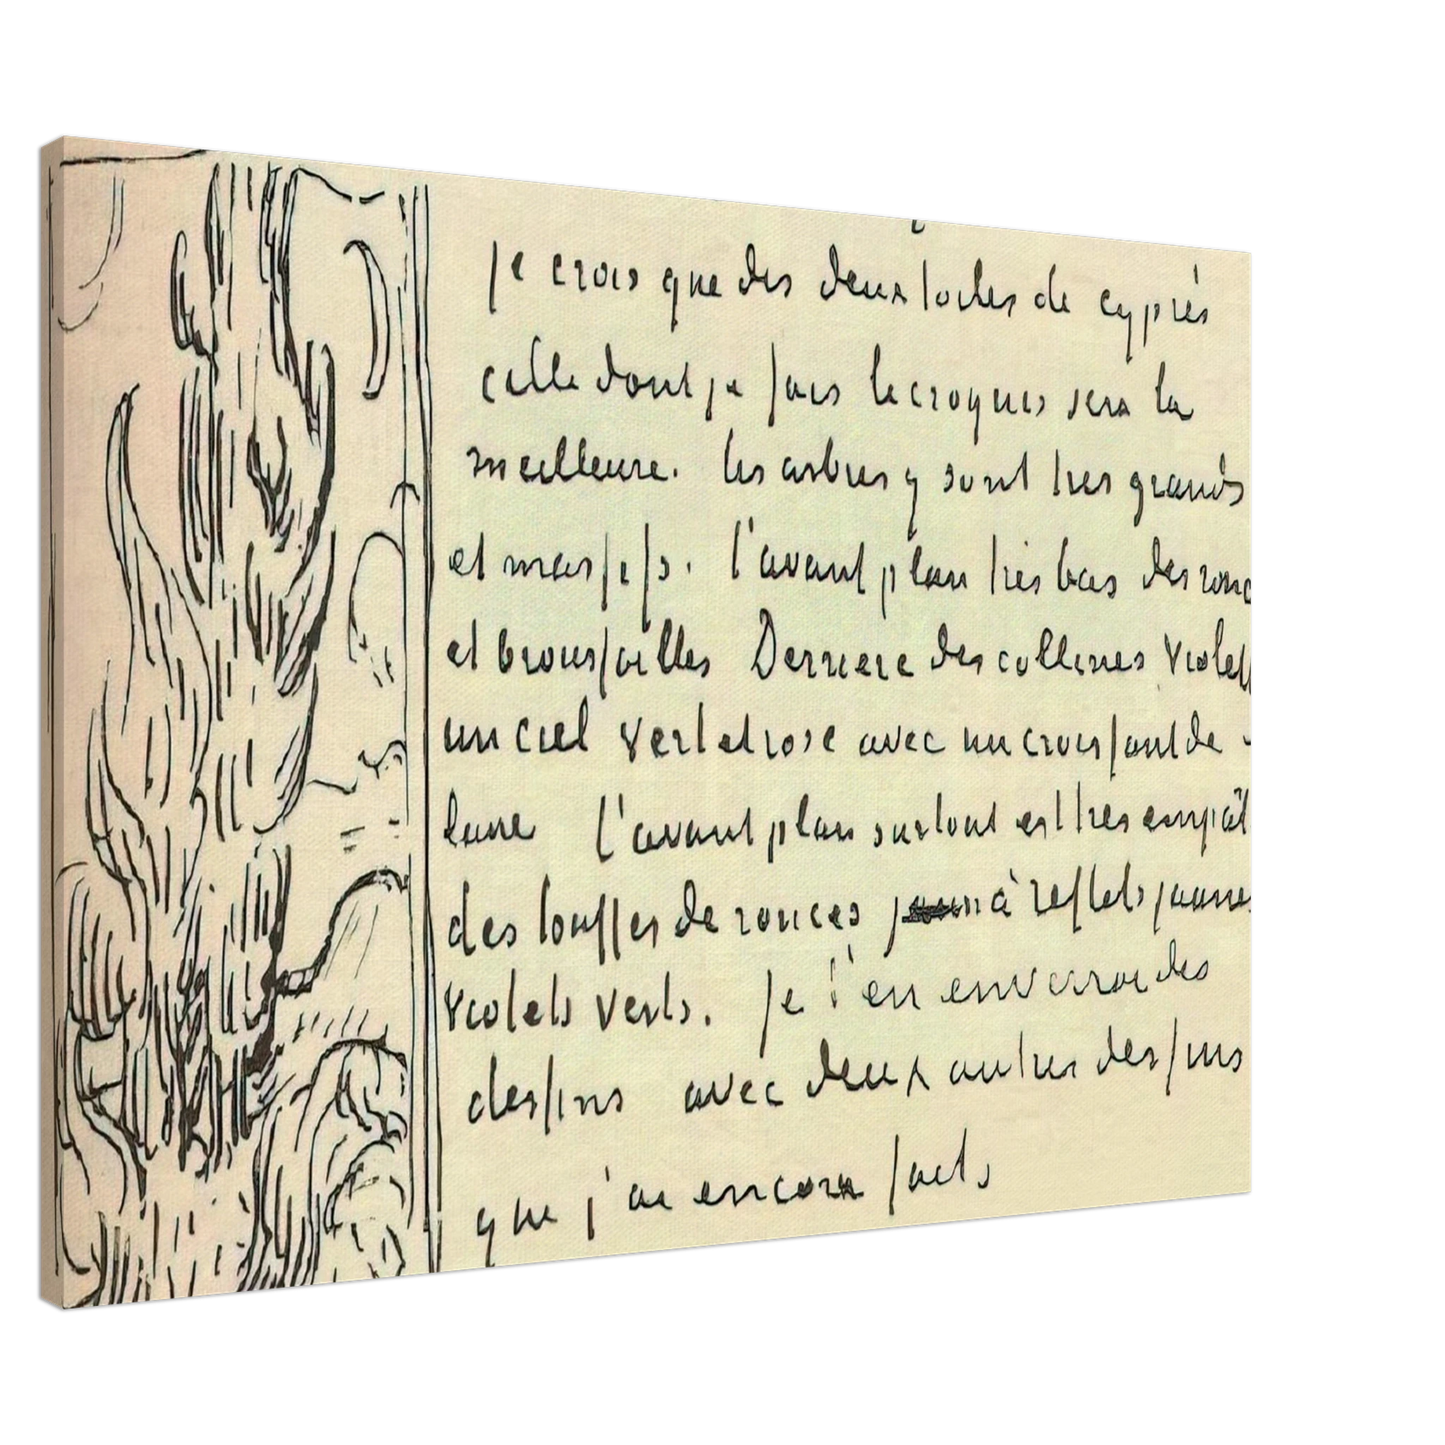 je crois que des deux toiles de cyprès
celle dont je fais le croquis sera la
meilleure. les arbres y sont très grands
et massifs. l'avant plan très bas des ronc
et broussailles Derriere des collines violett
un ciel vert et rose avec un croissant de
lune l'avant plan surtout est très empât
des touffes de ronces à reflets jaunes
violets verts. Je t'en enverrai des
dessins avec deux autres dessins
que j'ai encore faits